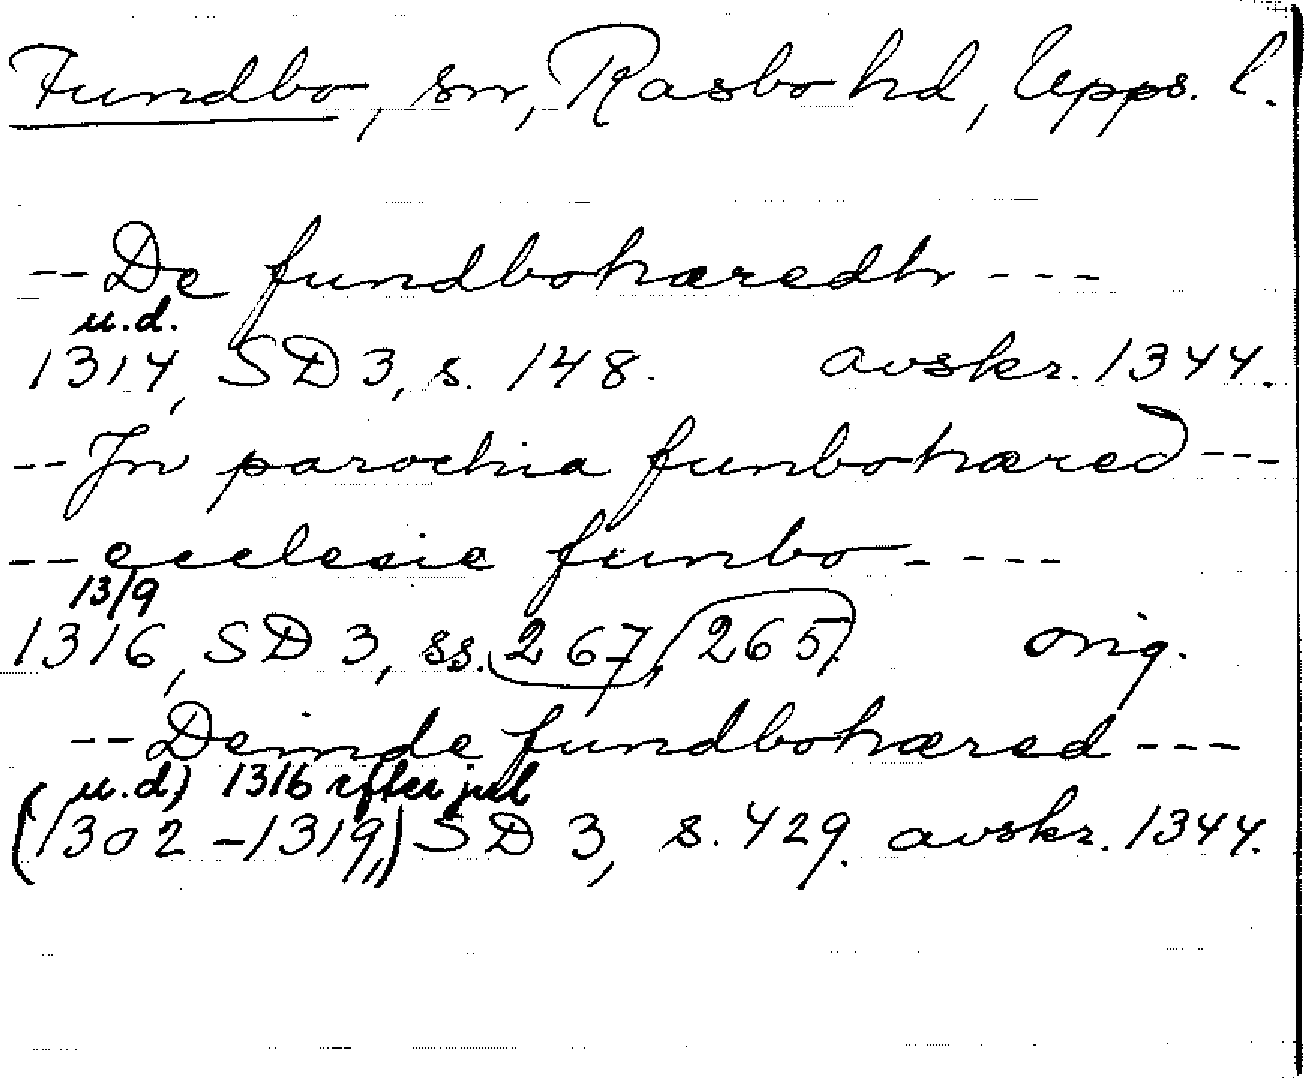 Fundbo, sn, Rasbo hd, Upps. l.
-- De fundbohæredh ---
u.d.
1314, SD 3, s. 148. avskr. 1344.
-- Jn parochia funbohæred ---
-- ecclesie funbo ----
13/9
1316, SD 3, ss. 267, 265. orig.
-- Deinde fundbohæred ---
u.d) 1316 efter jul
(1302-1319,) SD 3, s. 429. avskr. 1344.